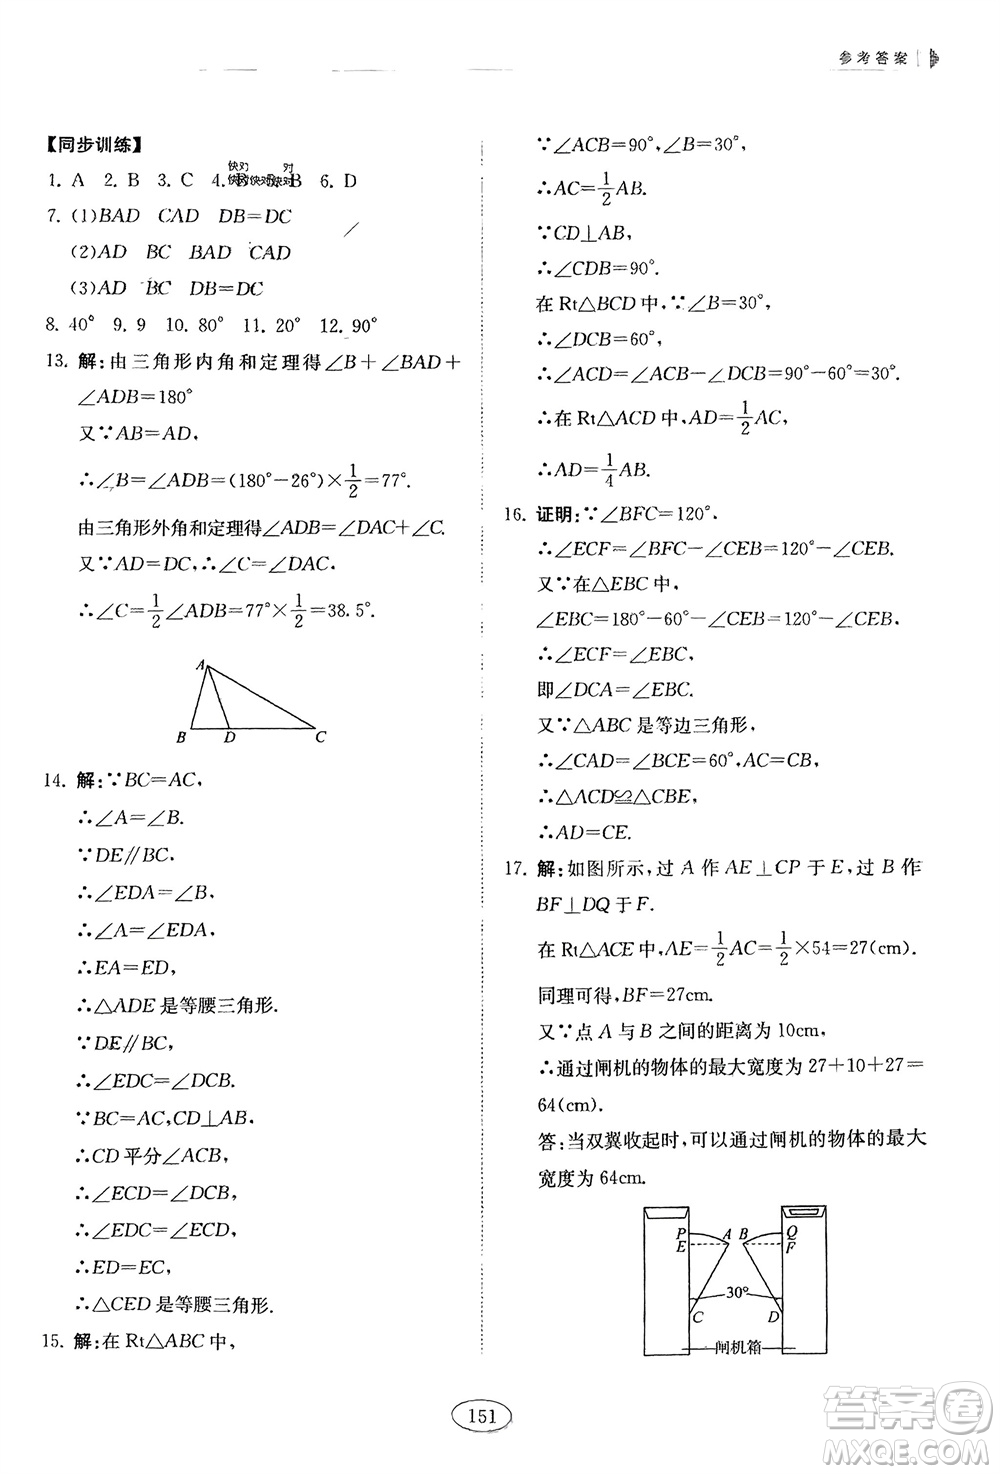 参考答案
【同步训练】
1. A 2. B 3. C 4. B 5. B 6. D
7. (1)BAD CAD DB=DC
(2)AD BC BAD CAD
(3)AD BC DB=DC
8. 40° 9. 9 10. 80° 11. 20° 12. 90°
13. 解:由三角形内角和定理得∠B+∠BAD+
∠ADB=180°
又∵AB=AD,
∴∠B=∠ADB=(180°-26°)×1/2=77°.
由三角形外角和定理得∠ADB=∠DAC+∠C.
又∵AD=DC,∴∠C=∠DAC,
∴∠C=1/2∠ADB=77°×1/2=38.5°.
A
B D C
14. 解:∵BC=AC,
∴∠A=∠B.
∵DE∥BC.
∴∠EDA=∠B,
∴∠A=∠EDA,
∴EA=ED,
∴△ADE是等腰三角形.
∵DE∥BC,
∴∠EDC=∠DCB.
∵BC=AC,CD⊥AB,
∴CD平分∠ACB,
∴∠ECD=∠DCB,
∴∠EDC=∠ECD,
∴ED=EC,
∴△CED是等腰三角形.
15. 解:在Rt△ABC中,
∵∠ACB=90°,∠B=30°,
∴AC=1/2AB.
∵CD⊥AB,
∴∠CDB=90°.
在Rt△BCD中,∵∠B=30°,
∴∠DCB=60°,
∴∠ACD=∠ACB-∠DCB=90°-60°=30°.
∴在Rt△ACD中,AD=1/2AC,
∴AD=1/4AB.
16. 证明:∵∠BFC=120°,
∴∠ECF=∠BFC-∠CEB=120°-∠CEB.
又∵在△EBC中,
∠EBC=180°-60°-∠CEB=120°-∠CEB,
∴∠ECF=∠EBC,
即∠DCA=∠EBC.
又∵△ABC是等边三角形,
∴∠CAD=∠BCE=60°,AC=CB,
∴△ACD≌△CBE,
∴AD=CE.
17. 解:如图所示,过A作AE⊥CP于E,过B作
BF⊥DQ于F.
在Rt△ACE中,AE=1/2AC=1/2×54=27(cm).
同理可得,BF=27cm.
又∵点A与B之间的距离为10cm,
∴通过闸机的物体的最大宽度为27+10+27=
64(cm).
答:当双翼收起时,可以通过闸机的物体的最大
宽度为64cm.
P A B Q
E F
30°
C D
闸机箱
151
答案卷
MXQE.COM